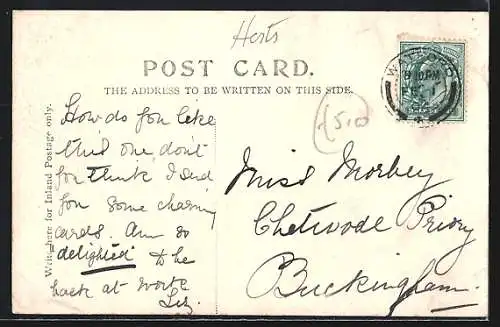 Herts
POST CARD.
THE ADDRESS TO BE WRITTEN ON THIS SIDE.
Write here for Inland Postage only.
How do you like
this one, don't
you think I send
you some charming
cards. Am so
delighted to be
back at work
Liz.
(5.00
Miss Morbey
Chetwode Priory
Buckingham.
WATFORD
8 10 PM